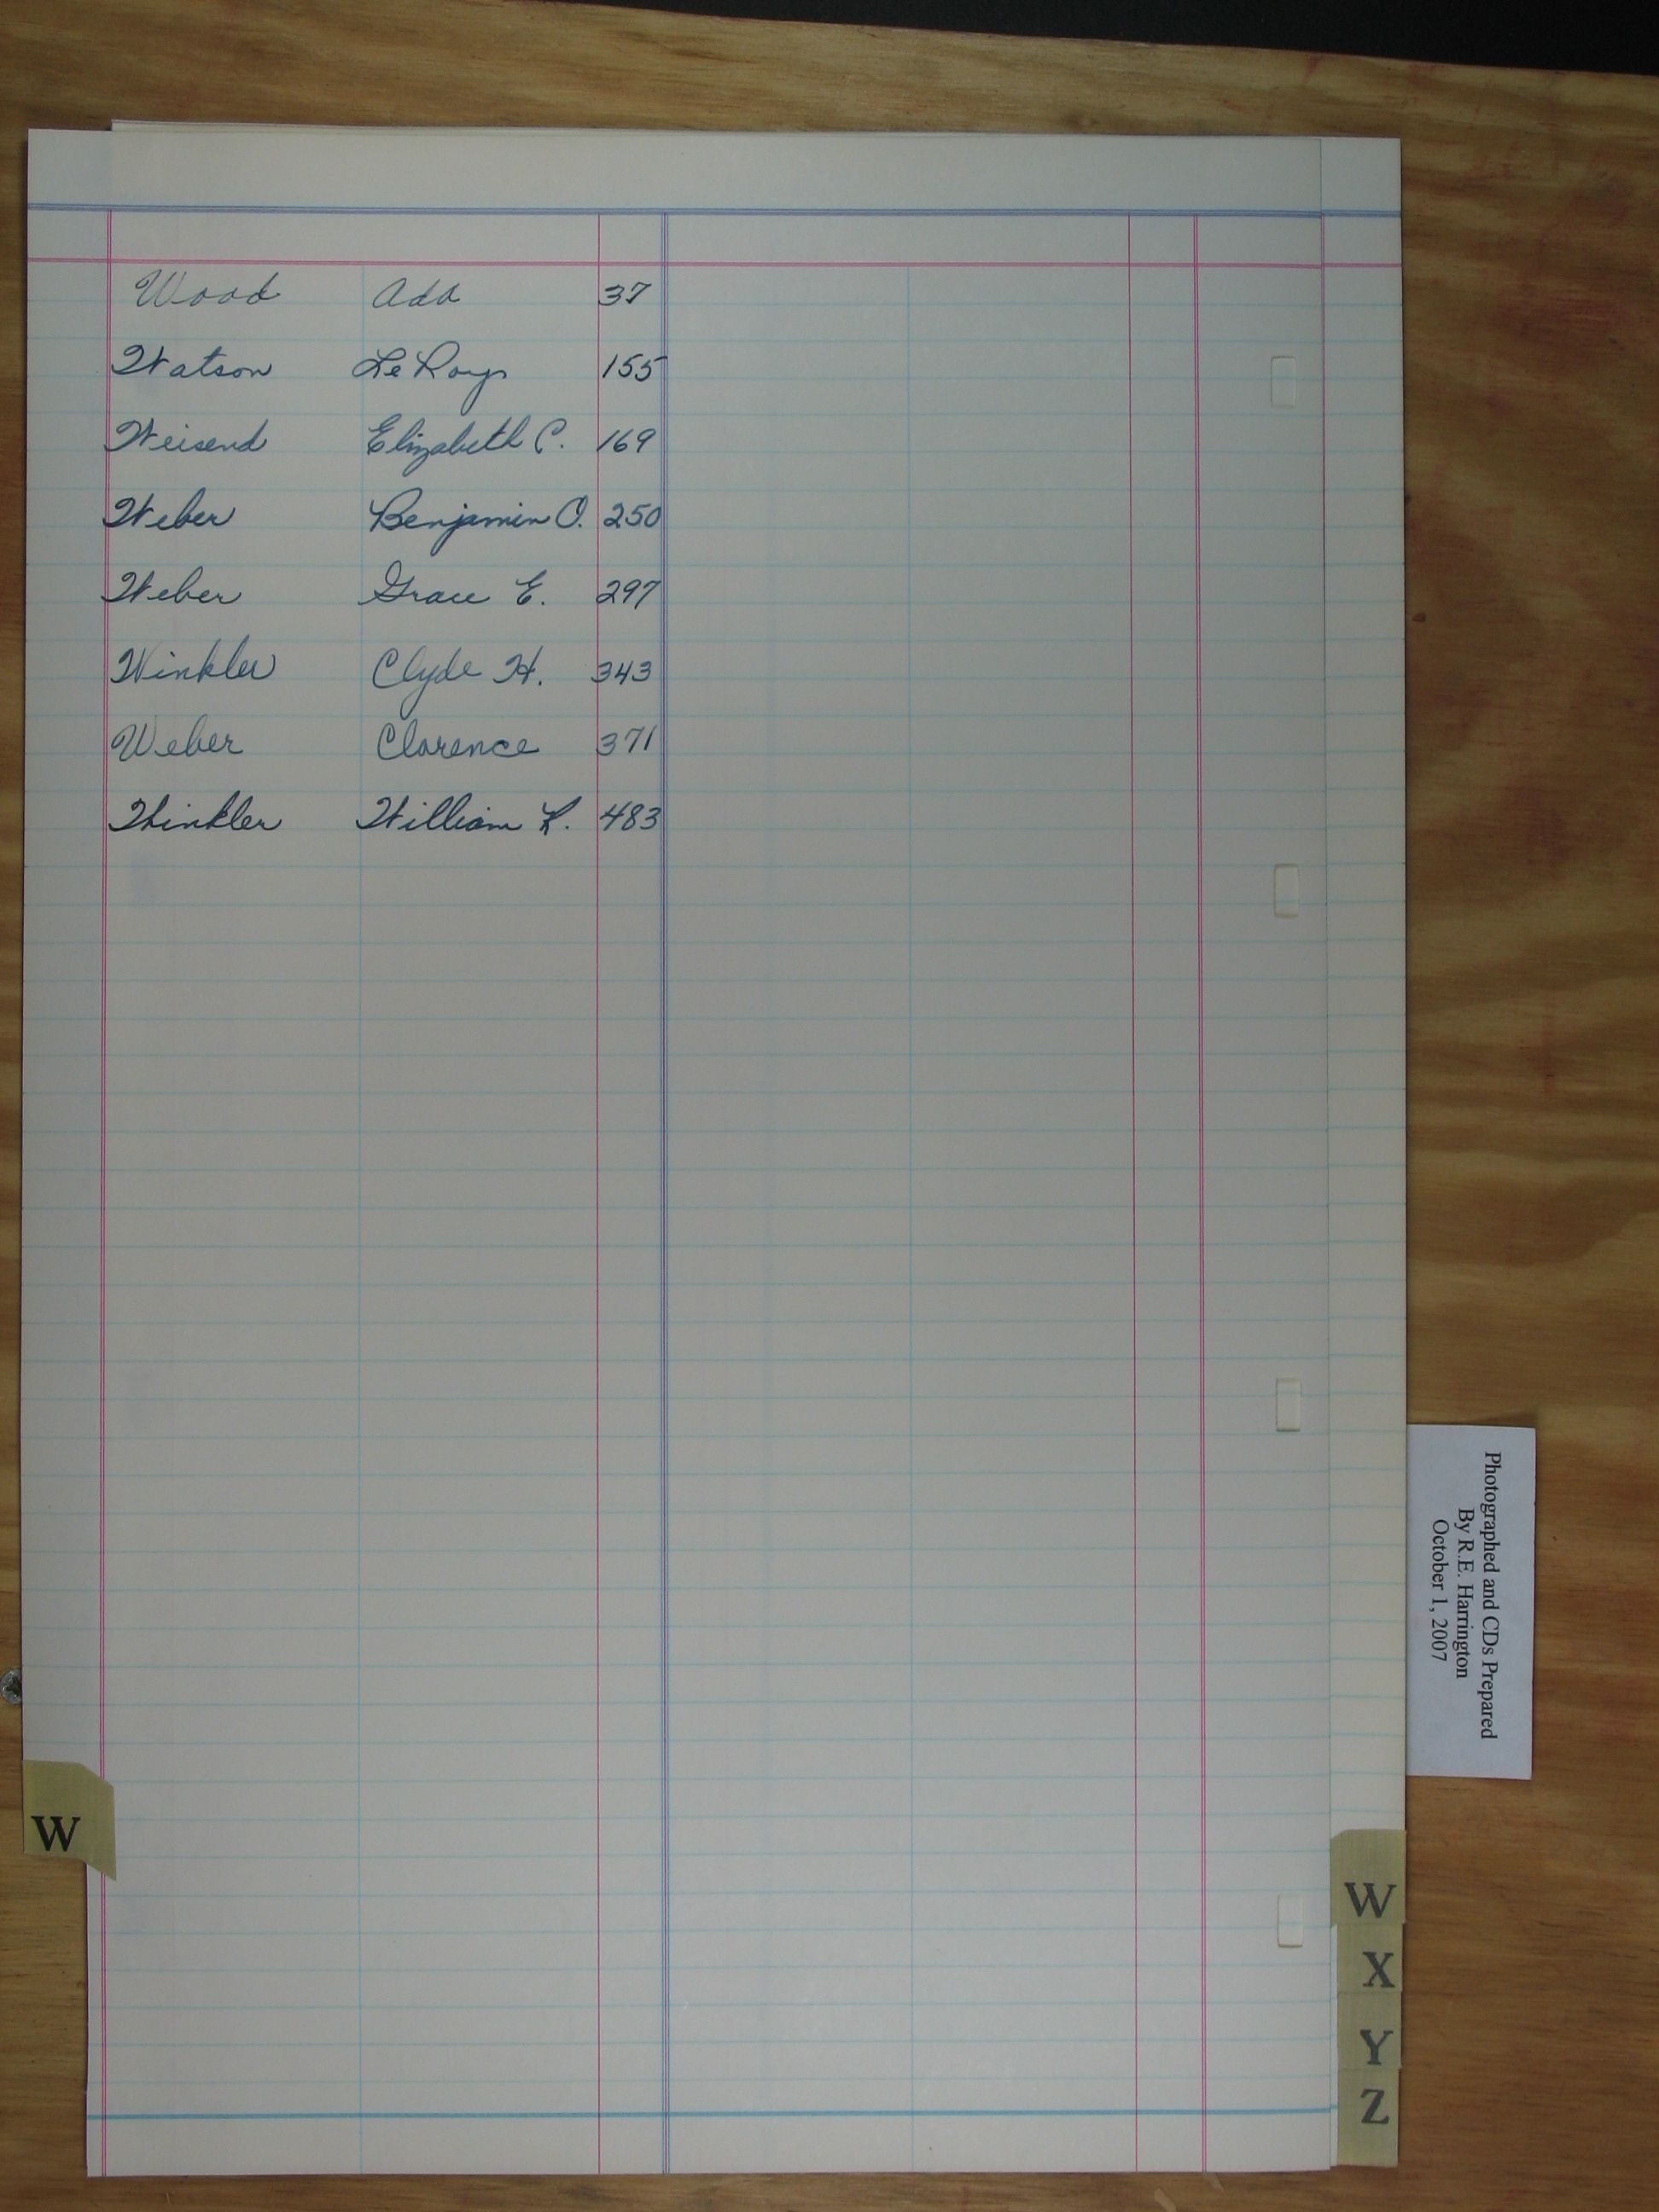 Wood Ada 37
Watson LeRoy 155
Weisend Elizabeth C. 169
Weber Benjamin O. 250
Weber Grace E. 297
Winkler Clyde H. 343
Weber Clarence 371
Winkler William R. 483
Photographed and CDs Prepared
By R.E. Harrington
October 1, 2007
W
W
X
Y
Z